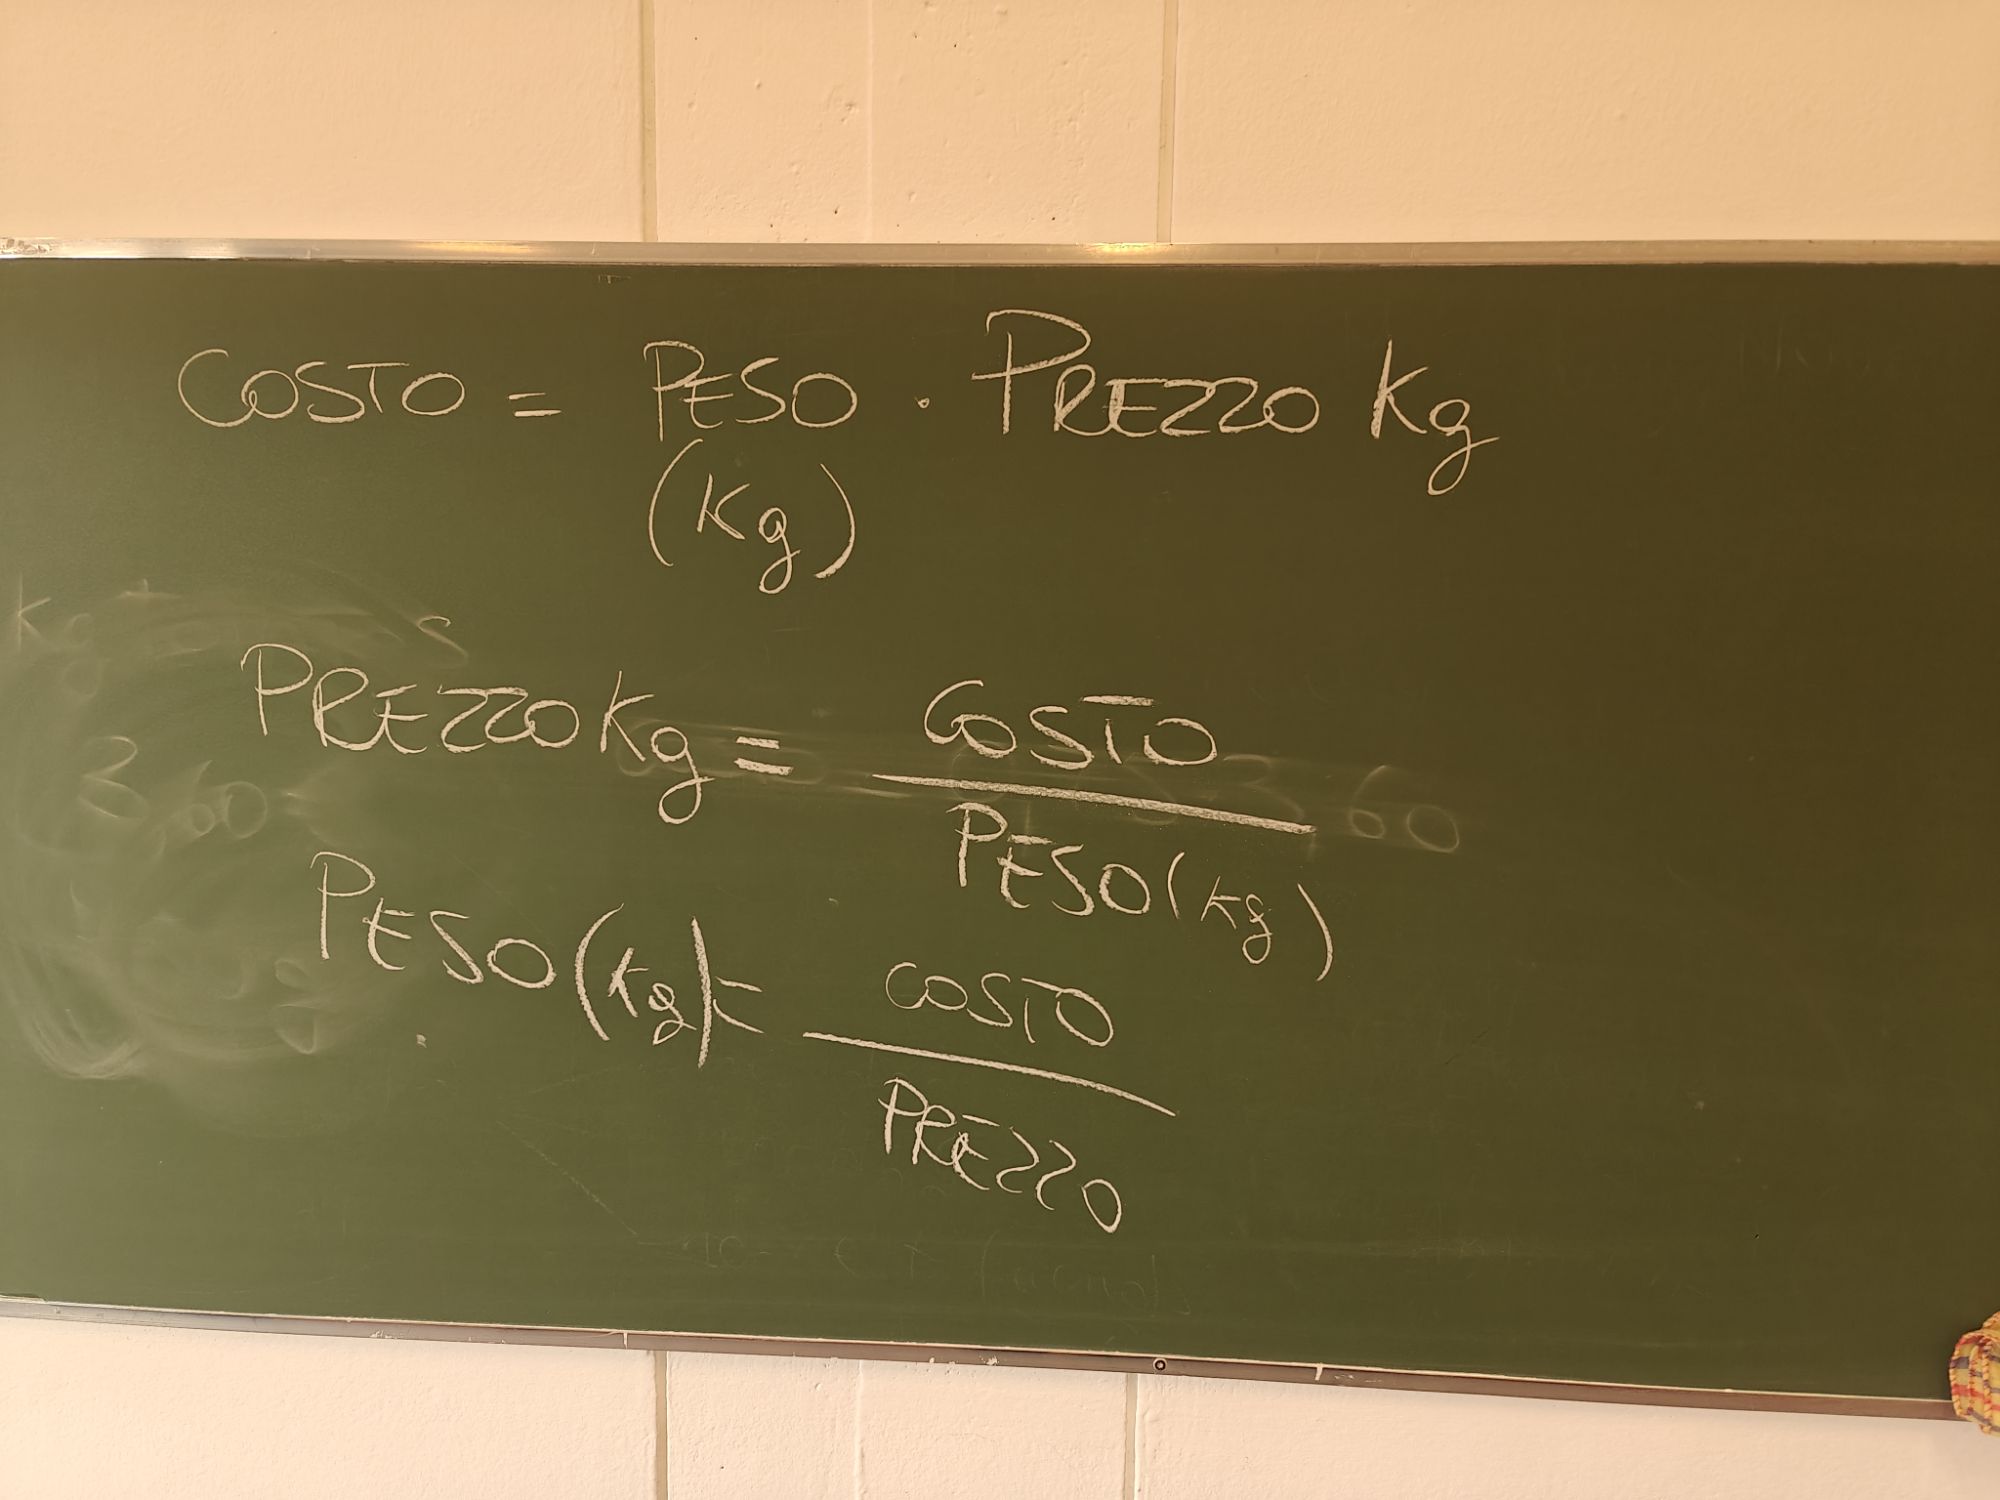 COSTO = PESO · PREZZO Kg
(Kg)
PREZZO Kg = COSTO
PESO (kg)
PESO (Kg) = COSTO
PREZZO